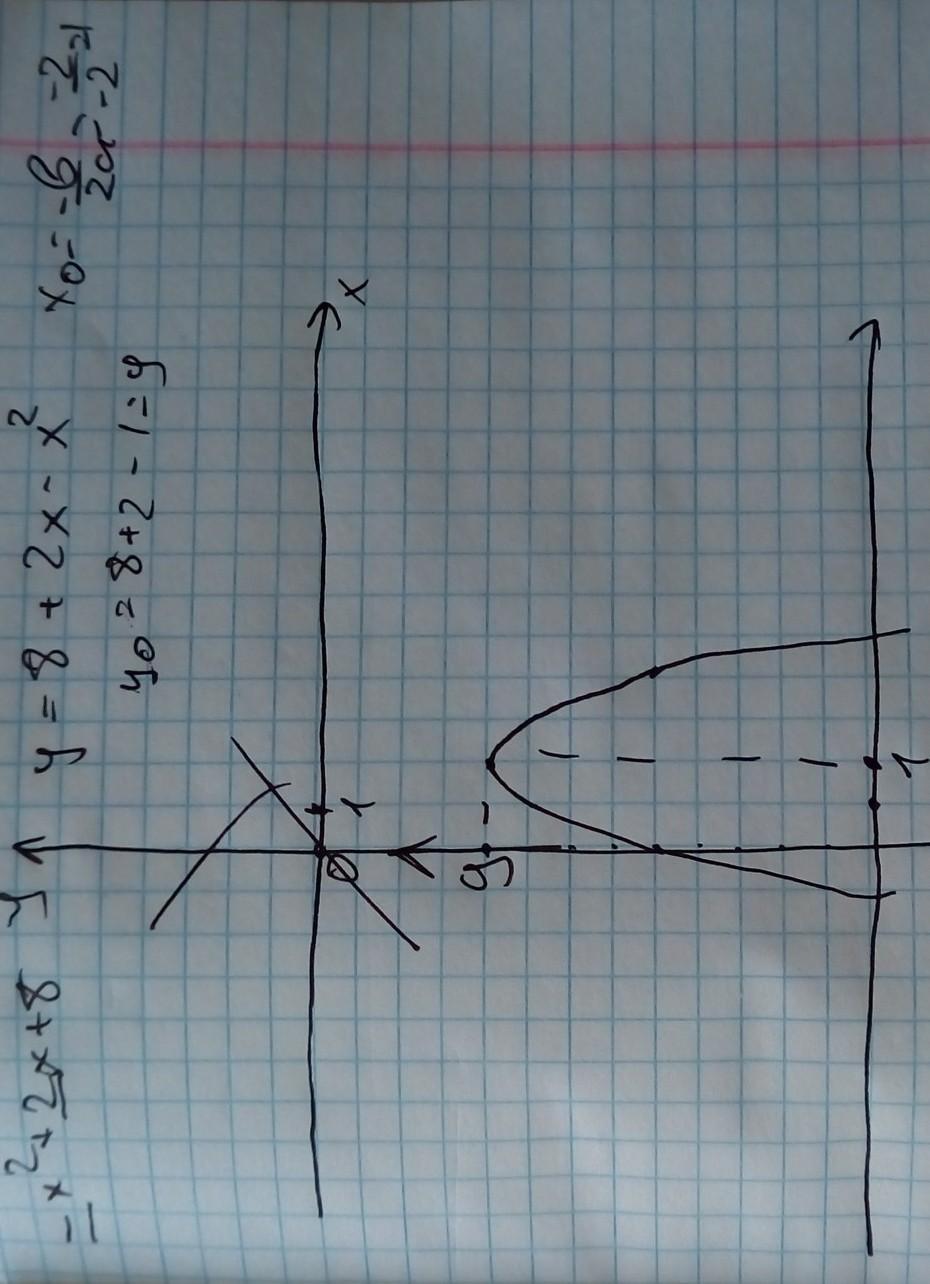 -x²+2x+8
y = 8 + 2x - x²
x₀ = -b/2a = -2/-2 = 1
y₀ = 8+2 - 1 = 9
y
x
0
1
9
1